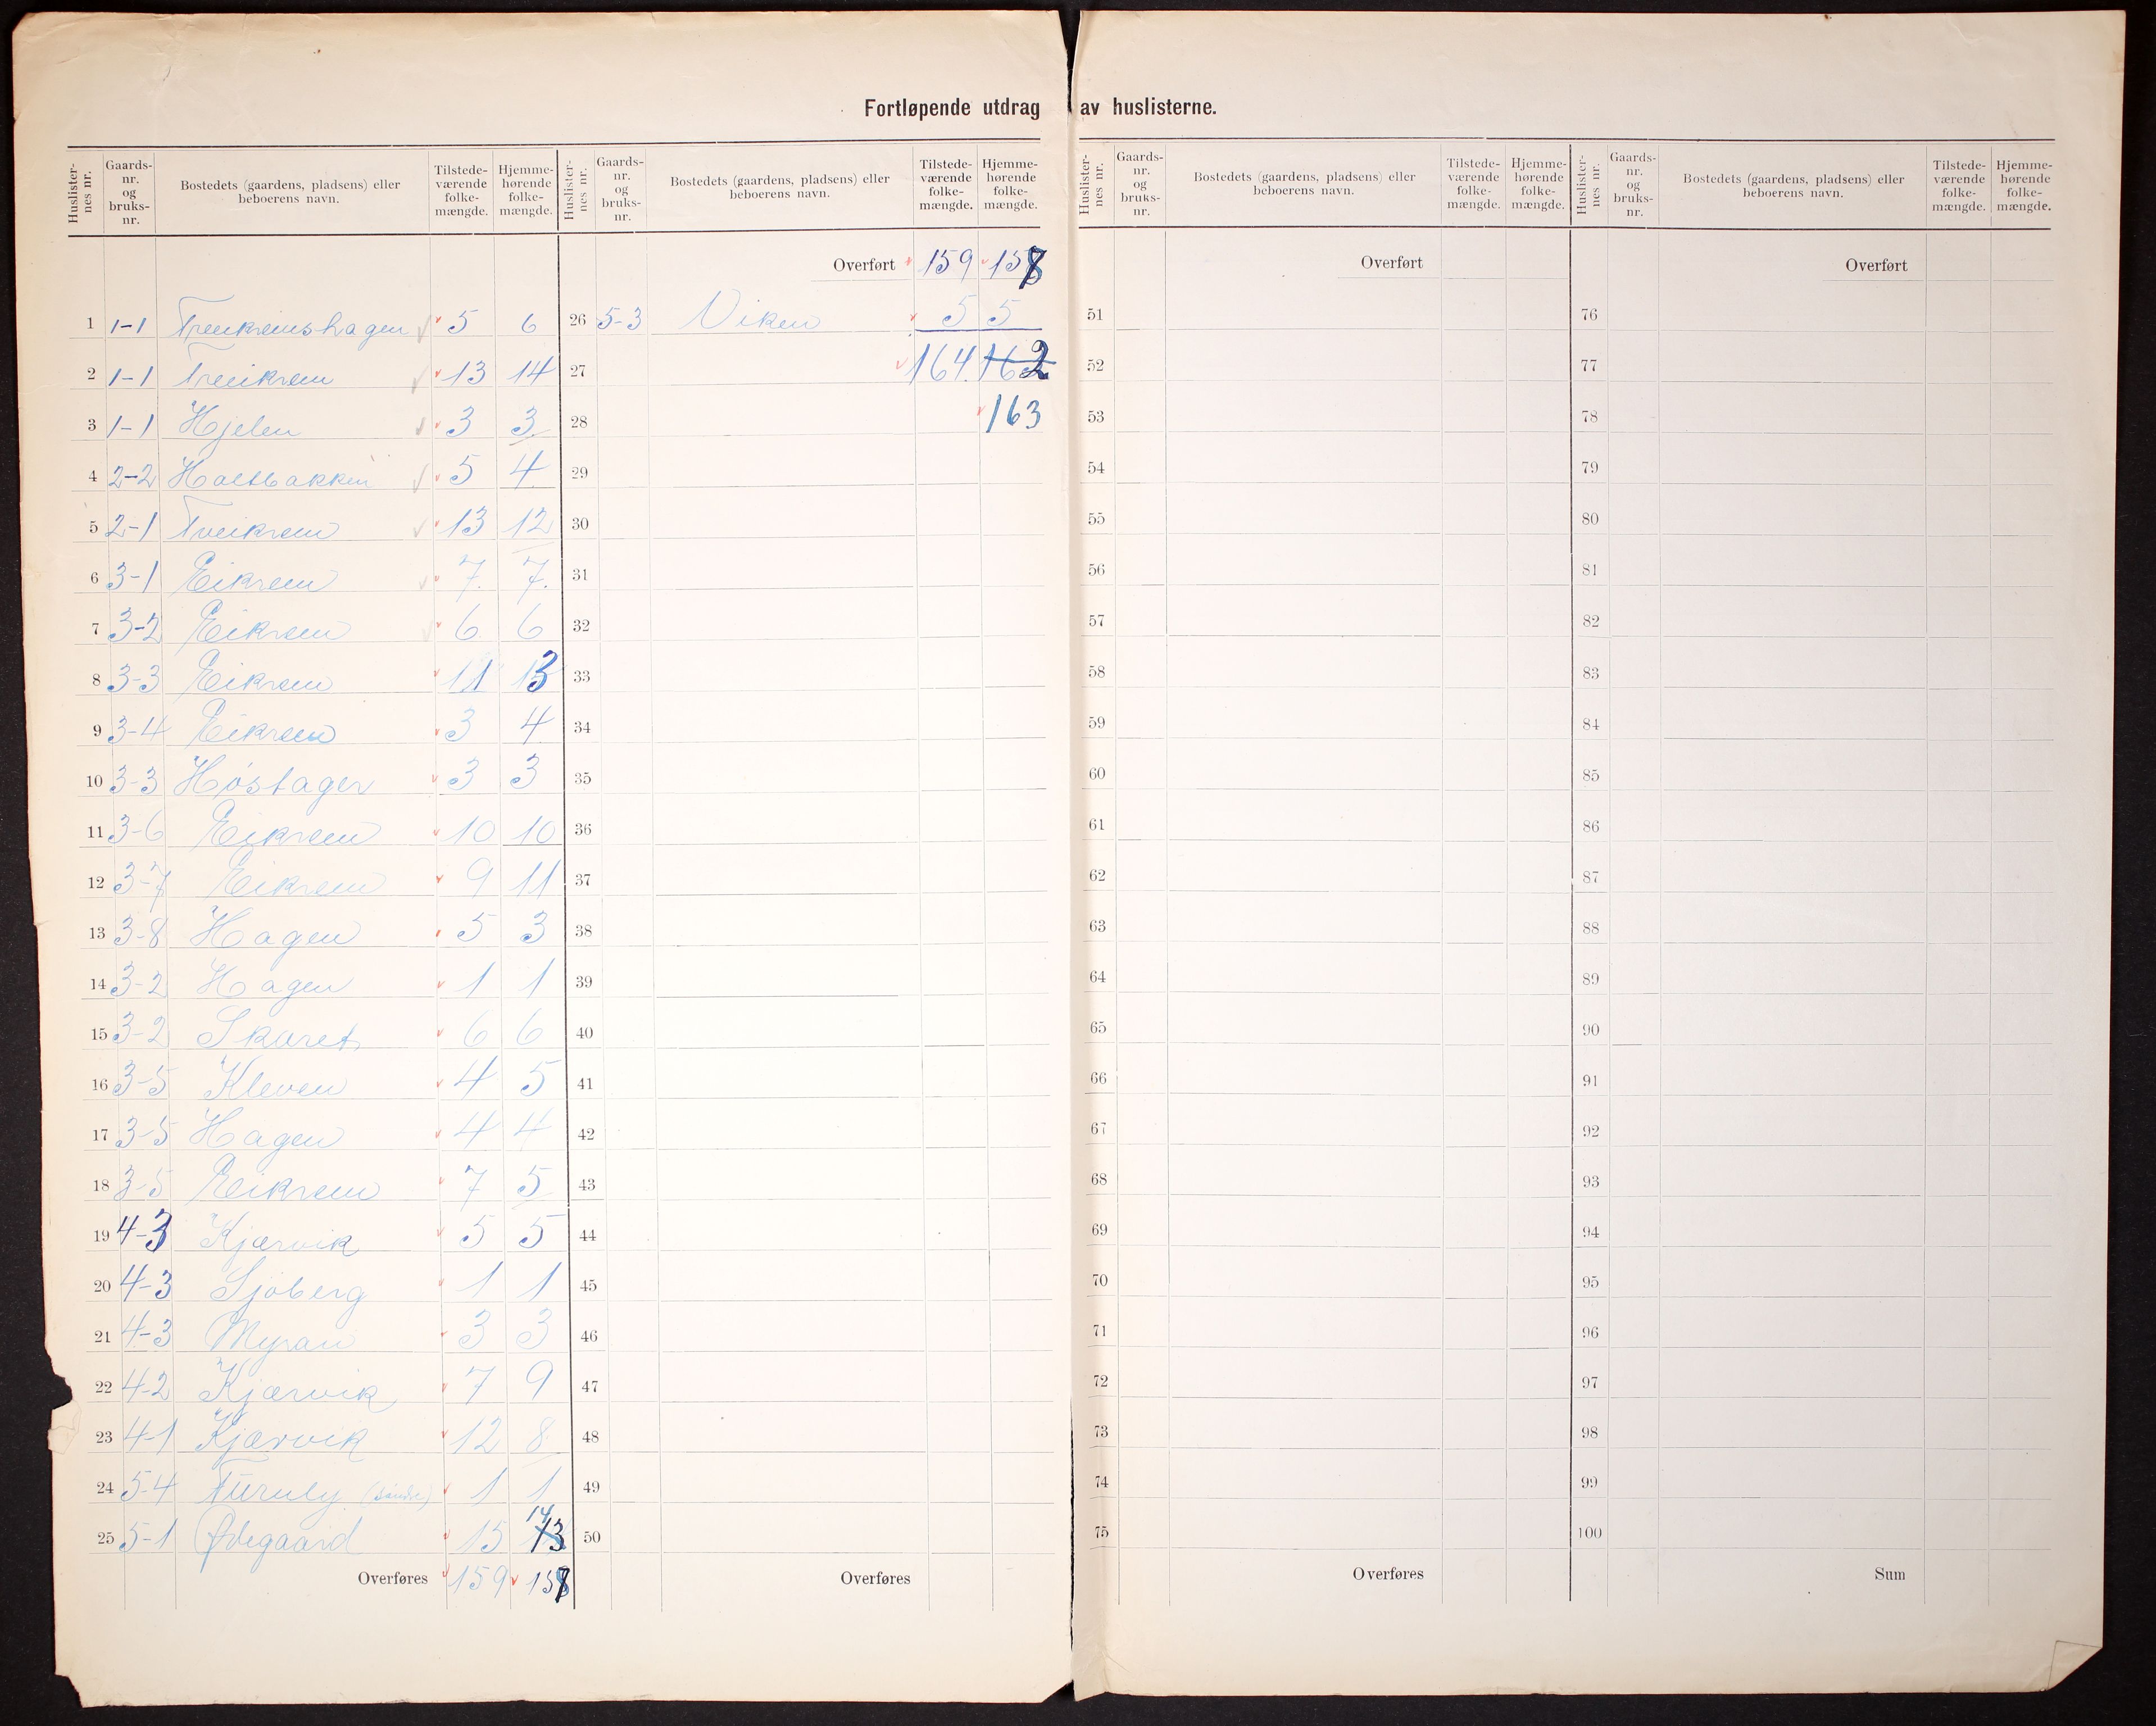 Fortløpende utdrag av huslisternes.
Huslister-nes nr. Gaards-nr. og bruks-nr. Bostedets (gaardens, pladsens) eller beboerens navn. Tilstede-værende folke-mængde. Hjemme-hørende folke-mængde.
1 1-1 Tveikremshagen 5 6
2 1-1 Tveikrem 13 14
3 1-1 Hjelen 3 3
4 2-2 Holtbakken 5 4
5 2-1 Tveikrem 13 12
6 3-1 Eikrem 7 7
7 3-2 Eikrem 6 6
8 3-3 Eikrem 11 13
9 3-4 Eikrem 3 4
10 3-3 Høstager 3 3
11 3-6 Eikrem 10 10
12 3-7 Eikrem 9 11
13 3-8 Hagen 5 3
14 3-2 Hagen 1 1
15 3-2 Skaret 6 6
16 3-5 Kleven 4 5
17 3-5 Hagen 4 4
18 3-5 Eikrem 7 5
19 4-3 Kjærvik 5 5
20 4-3 Sjøberg 1 1
21 4-3 Myran 3 3
22 4-2 Kjærvik 7 9
23 4-1 Kjærvik 12 8
24 5-4 Furuly 1 1
25 5-1 Ødegaard 15 14 13
Overføres 159 158
Huslister-nes nr. Gaards-nr. og bruks-nr. Bostedets (gaardens, pladsens) eller beboerens navn. Tilstede-værende folke-mængde. Hjemme-hørende folke-mængde.
Overført 159 158
26 5-3 Viken 5 5
27 164 162
28 163
29
30
31
32
33
34
35
36
37
38
39
40
41
42
43
44
45
46
47
48
49
50
Overføres
Huslister-nes nr. Gaards-nr. og bruks-nr. Bostedets (gaardens, pladsens) eller beboerens navn. Tilstede-værende folke-mængde. Hjemme-hørende folke-mængde.
Overført
51
52
53
54
55
56
57
58
59
60
61
62
63
64
65
66
67
68
69
70
71
72
73
74
75
Overføres
Huslister-nes nr. Gaards-nr. og bruks-nr. Bostedets (gaardens, pladsens) eller beboerens navn. Tilstede-værende folke-mængde. Hjemme-hørende folke-mængde.
Overført
76
77
78
79
80
81
82
83
84
85
86
87
88
89
90
91
92
93
94
95
96
97
98
99
100
Sum